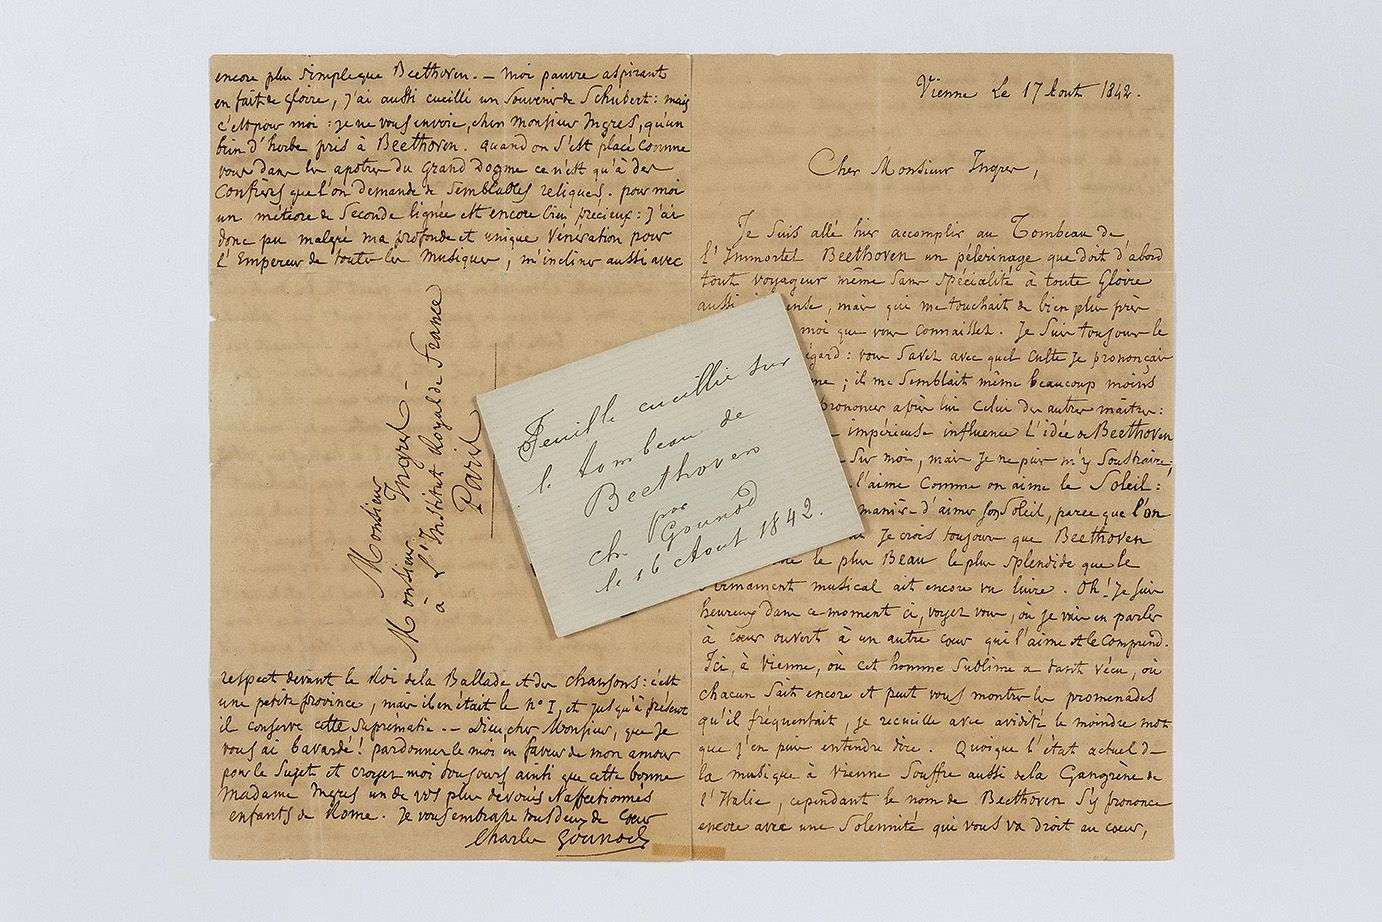 Vienne Le 17 Aout 1842.
Cher Monsieur Ingres,
Je suis allé hier accomplir au Tombeau de
l'Immortel Beethoven un pélerinage que doit d'abord
tout voyageur même sans spécialité à toute Gloire
aussi, mais qui me touchait de bien plus près
moi que vous connaissez. Je suis toujours le
égard : vous savez avec quel culte je prononçais
me ; il me semblait même beaucoup moins
prononcer après lui celui des autres maîtres :
impérieuse influence l'idée de Beethoven
sur moi, mais je ne puis m'y soustraire,
l'aime comme on aime le Soleil :
manière d'aimer son Soleil, parce que l'on
Je crois toujours que Beethoven
le plus Beau le plus splendide que le
firmament musical ait encore vu luire. Oh ! je suis
heureux dans ce moment ci, voyez vous, où je vais en parler
à cœur ouvert à un autre cœur qui l'aime et le comprend.
Ici, à Vienne, où cet homme sublime a tant vécu, où
chacun sait encore et peut vous montrer les promenades
qu'il fréquentait, je recueille avec avidité le moindre mot
que j'en puis entendre dire. Quoique l'état actuel de
la musique à Vienne souffre aussi de la Gangrène de
l'Italie, cependant le nom de Beethoven s'y prononce
encore avec une solemnité qui vous va droit au cœur,
encore plus simple que Beethoven. — moi pauvre aspirant
en fait de gloire, j'ai aussi cueilli un souvenir de Schubert : mais
c'est pour moi : je ne vous envoie, cher Monsieur Ingres, qu'un
brin d'herbe pris à Beethoven. quand on s'est placé comme
vous dans les apôtres du Grand Dogme ce n'est qu'à des
Confrères que l'on demande de semblables reliques. pour moi
un météore de seconde lignée est encore bien précieux : j'ai
donc pu malgré ma profonde et unique vénération pour
l'Empereur de toutes les Musiques, m'incliner aussi avec
Monsieur
Monsieur Ingres
à l'Institut Royal de France
Paris
respect devant le Roi de la Ballade et des chansons : c'est
une petite province, mais il en était le n° I, et jusqu'à présent
il conserve cette suprématie. — Dieu, cher Monsieur, que je
vous ai bavardé ! pardonnez le moi en faveur de mon amour
pour le sujet et croyez moi toujours ainsi que cette bonne
Madame Ingres un de vos plus dévoués et affectionnés
enfants de Rome. Je vous embrasse tous deux de cœur
Charles Gounod
Feuille cueillie sur
le tombeau de
Beethoven
par
Ch Gounod
le 16 Aout 1842.